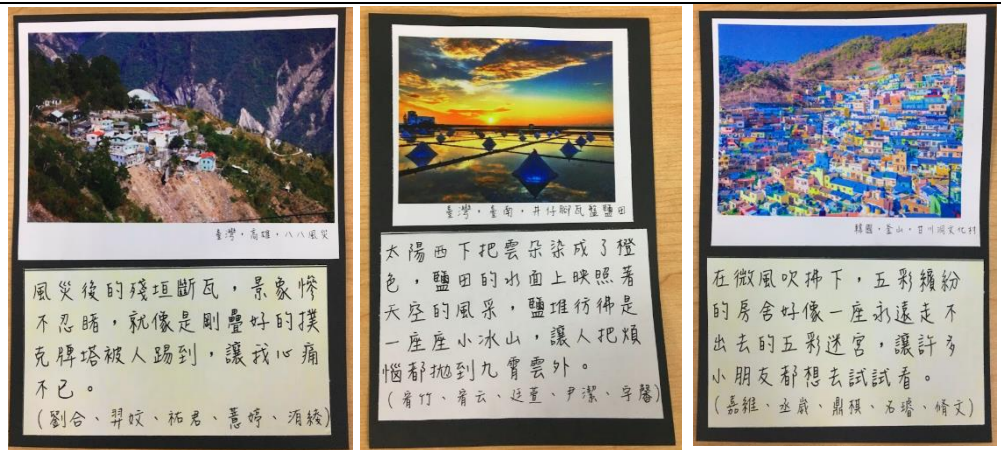 臺灣，高雄，八八風災
風災後的殘垣斷瓦，景象慘
不忍睹，就像是剛疊好的撲
克牌塔被人踢到，讓我心痛
不已。
(劉合、羿妏、祐君、薏婷、湏綾)
臺灣，臺南，井仔腳瓦盤鹽田
太陽西下把雲朵染成了橙
色，鹽田的水面上映照著
天空的風采，鹽堆彷彿是
一座座小冰山，讓人把煩
惱都拋到九霄雲外。
(宥竹、宥云、廷萱、尹潔、宇馨)
韓國，釜山，甘川洞文化村
在微風吹拂下，五彩繽紛
的房舍好像一座永遠走不
出去的五彩迷宮，讓許多
小朋友都想去試試看。
(嘉維、丞崴、鼎棋、石璿、脩文)